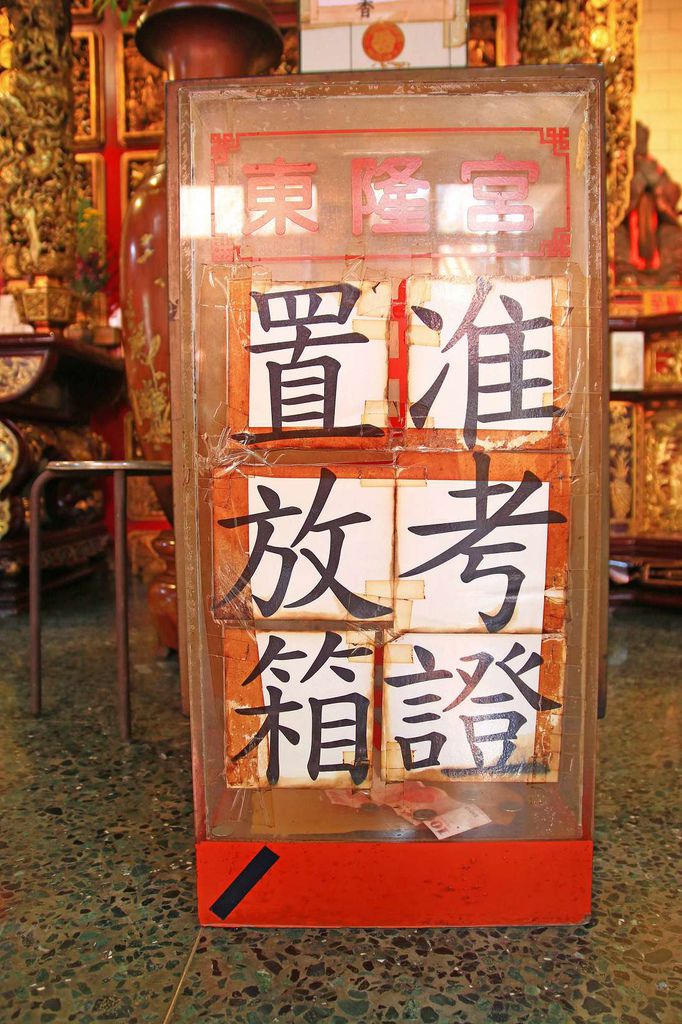 香
東隆宮
准考證
置放箱